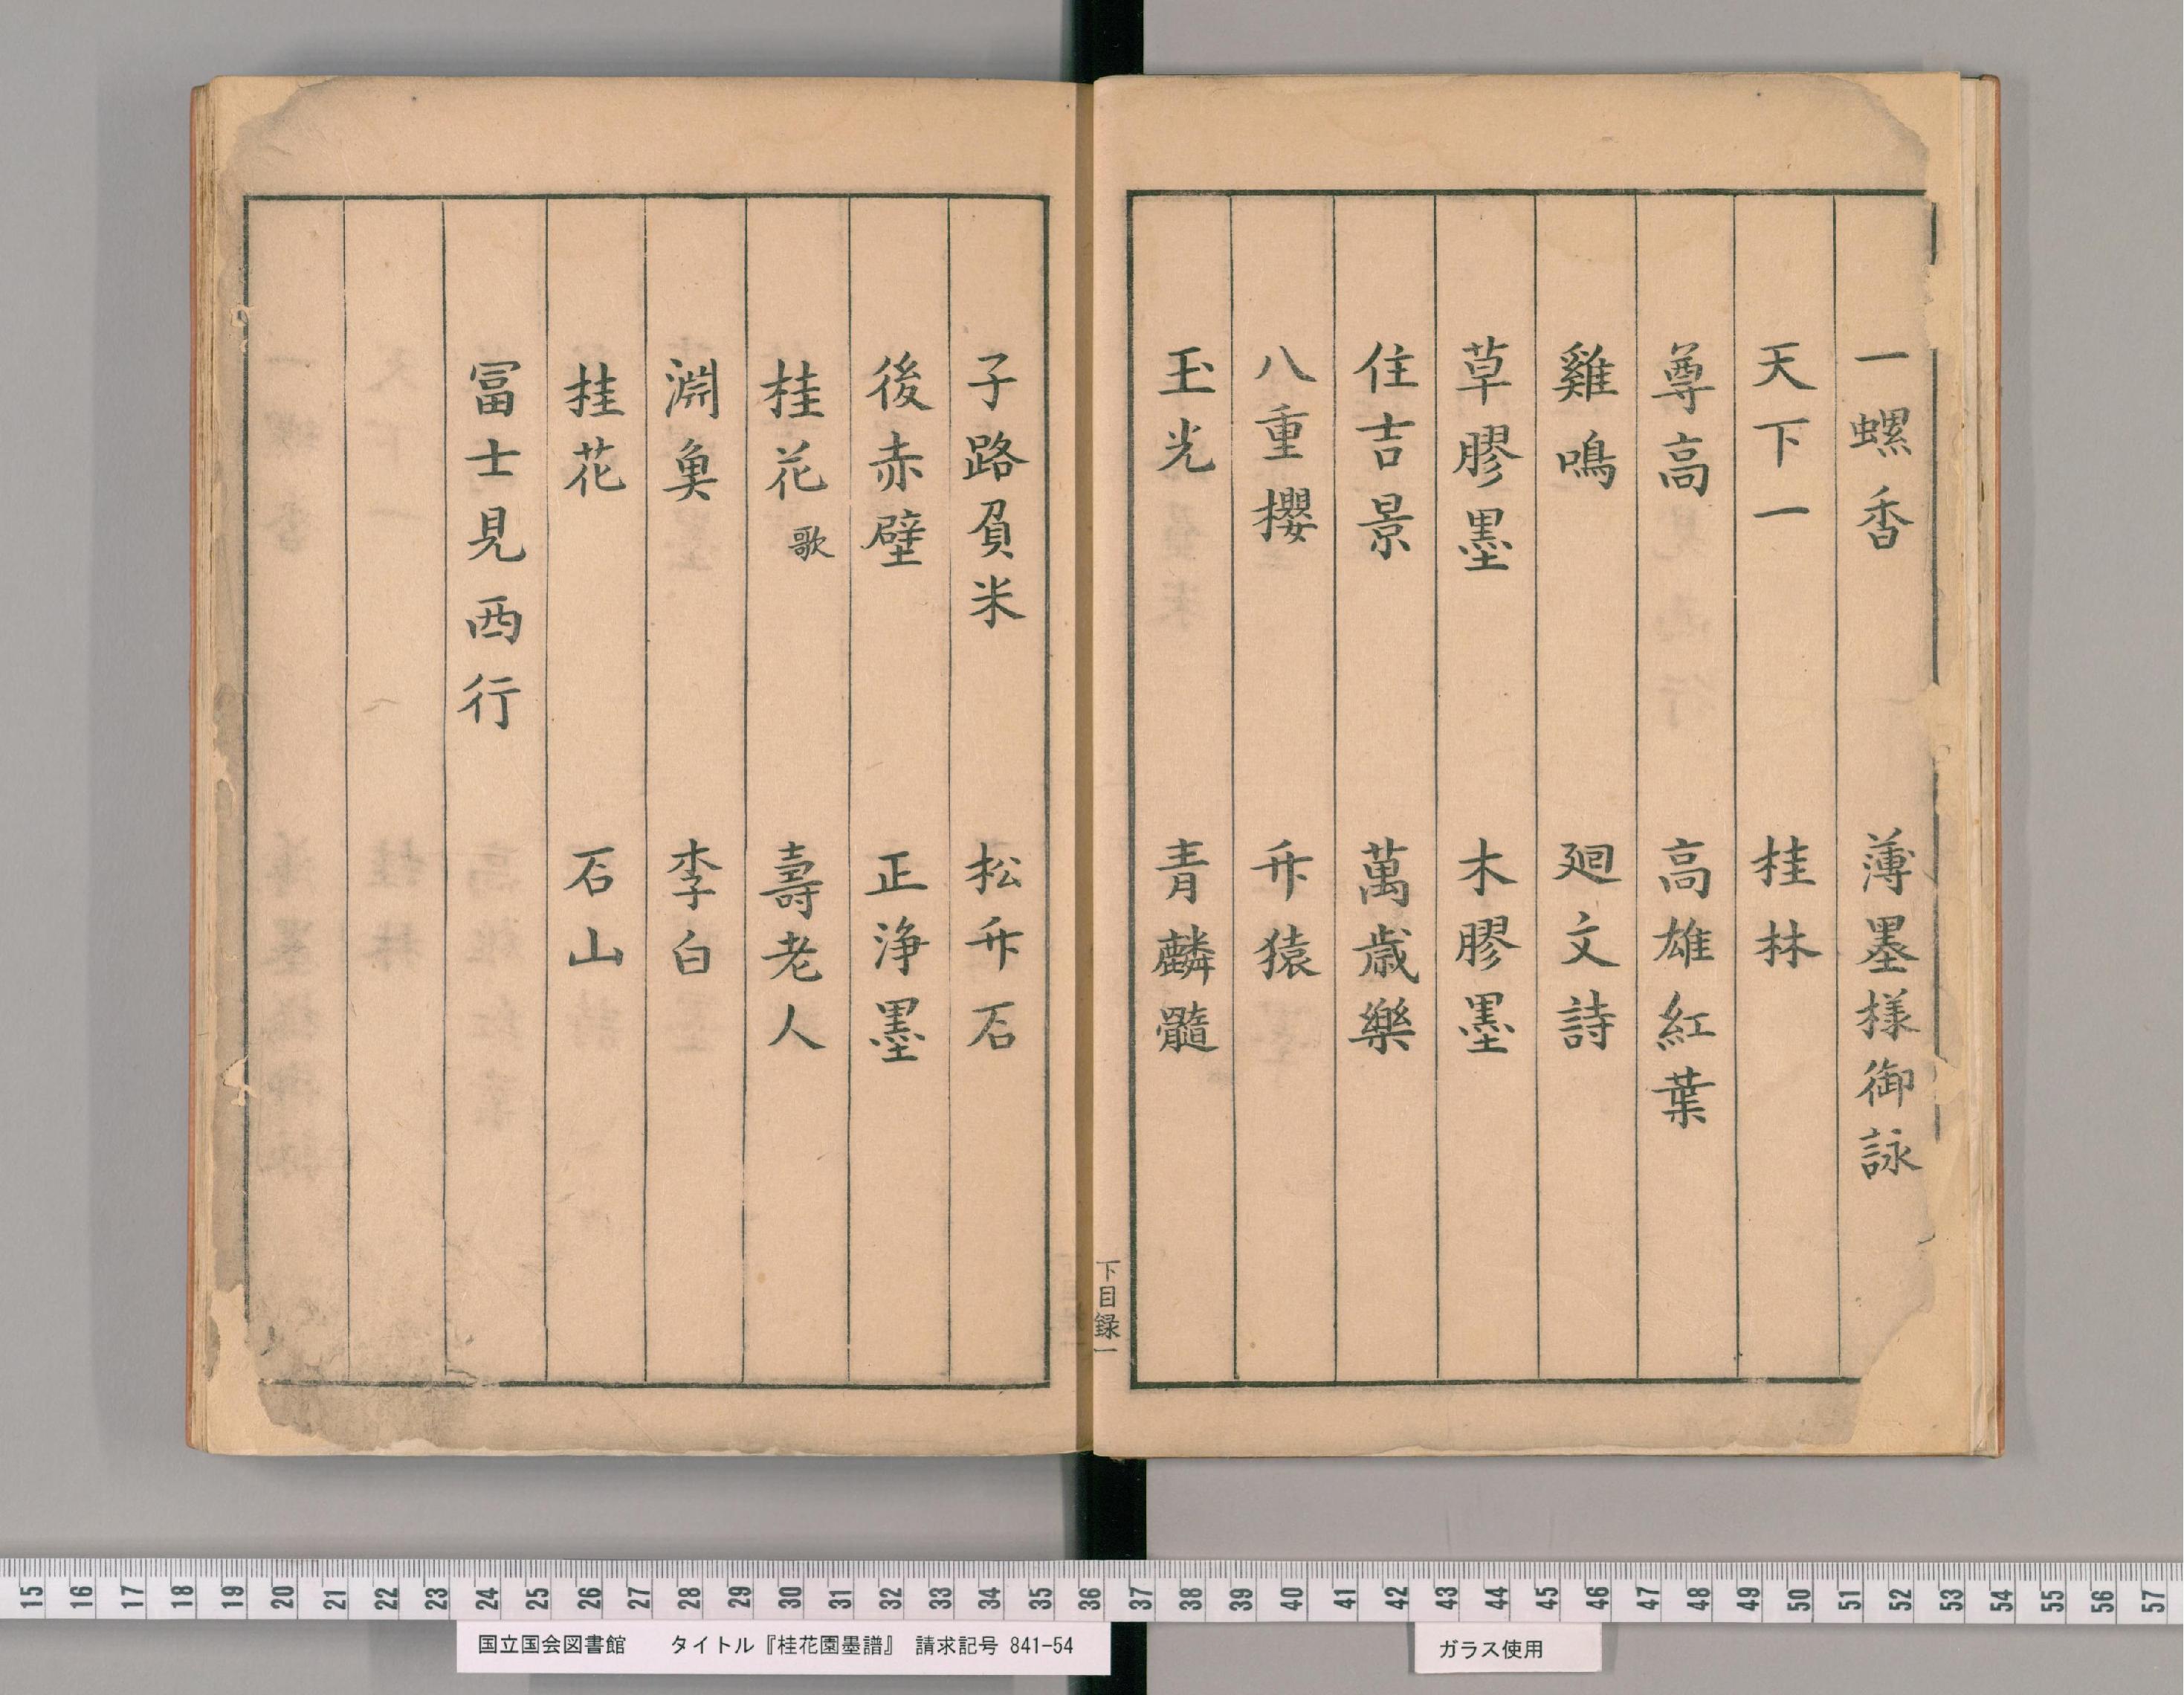 一螺香　薄墨様御詠
天下一　桂林
尊高　高雄紅葉
雞鳴　廻文詩
草膠墨　木膠墨
住吉景　萬歳樂
八重櫻　升猿
玉光　青麟髓
下目録一
子路負米　松升石
後赤壁　正浄墨
桂花歌　壽老人
淵魚　李白
桂花　石山
冨士見西行
15 16 17 18 19 20 21 22 23 24 25 26 27 28 29 30 31 32 33 34 35 36 37 38 39 40 41 42 43 44 45 46 47 48 49 50 51 52 53 54 55 56 57
国立国会図書館　タイトル『桂花園墨譜』　請求記号 841-54
ガラス使用